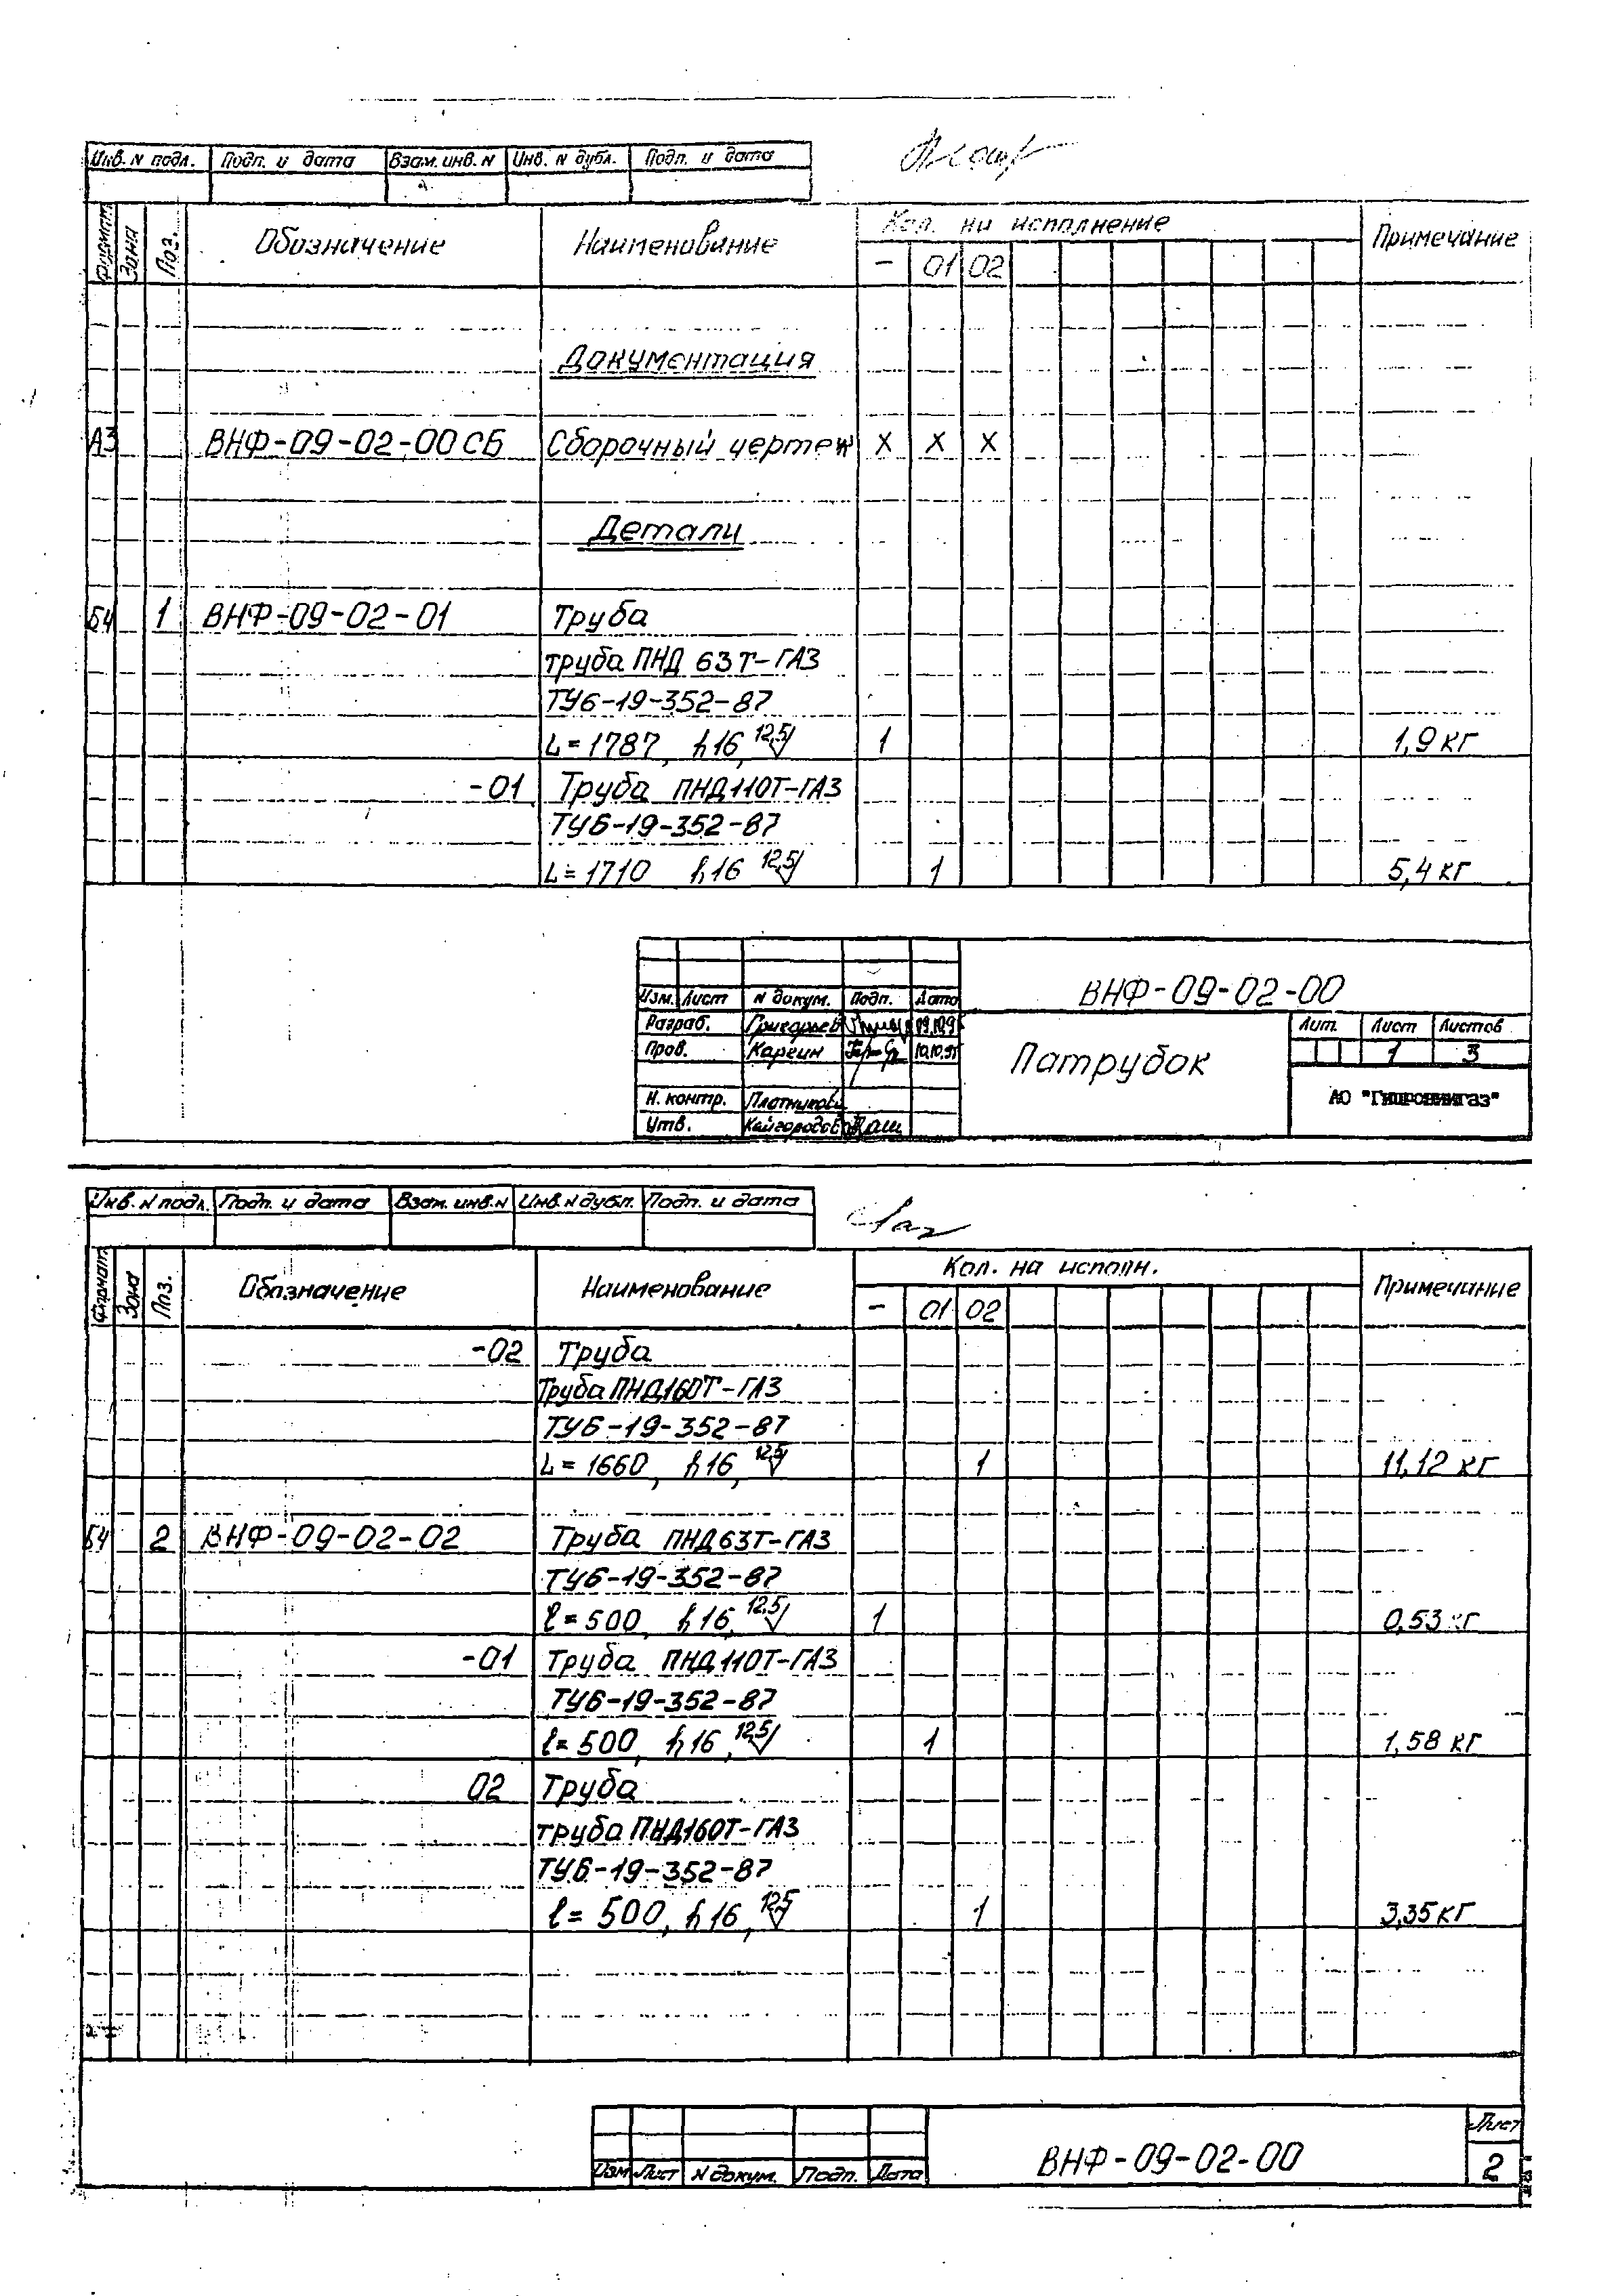 Инв. N подл. Подп. и дата Взам. инв. N Инв. N дубл. Подп. и дата
Формат Зона Поз. Обозначение Наименование Кол. на исполнение Примечание
- 01 02
Документация
А3 ВНФ-09-02-00 СБ Сборочный чертеж X X X
Детали
Б4 1 ВНФ-09-02-01 Труба
труба ПНД 63Т-ГАЗ
ТУ6-19-352-87
L=1787, h16, 12,5 1 1,9 кг
-01 Труба ПНД110Т-ГАЗ
ТУ6-19-352-87
L=1710 h16 12,5 1 5,4 кг
ВНФ-09-02-00
Изм. Лист N докум. Подп. Дата
Разраб. Григорьев
Пров. Каргин 10.10.95
Н. контр. Плотникова
Утв. Кайгородов
Патрубок
Лит. Лист Листов
1 3
АО "Гипрониигаз"
Инв. N подл. Подп. и дата Взам. инв. N Инв. N дубл. Подп. и дата
Формат Зона Поз. Обозначение Наименование Кол. на исполн. Примечание
- 01 02
-02 Труба
Труба ПНД160Т-ГАЗ
ТУ6-19-352-87
L=1660, h16, 12,5 1 11,12 кг
Б4 2 ВНФ-09-02-02 Труба ПНД63Т-ГАЗ
ТУ6-19-352-87
l=500, h16, 12,5 1 0,53 кг
-01 Труба ПНД110Т-ГАЗ
ТУ6-19-352-87
l=500, h16, 12,5 1 1,58 кг
02 Труба
труба ПНД160Т-ГАЗ
ТУ6-19-352-87
l=500, h16, 12,5 1 3,35 кг
Изм Лист N докум. Подп. Дата
ВНФ-09-02-00
Лист
2